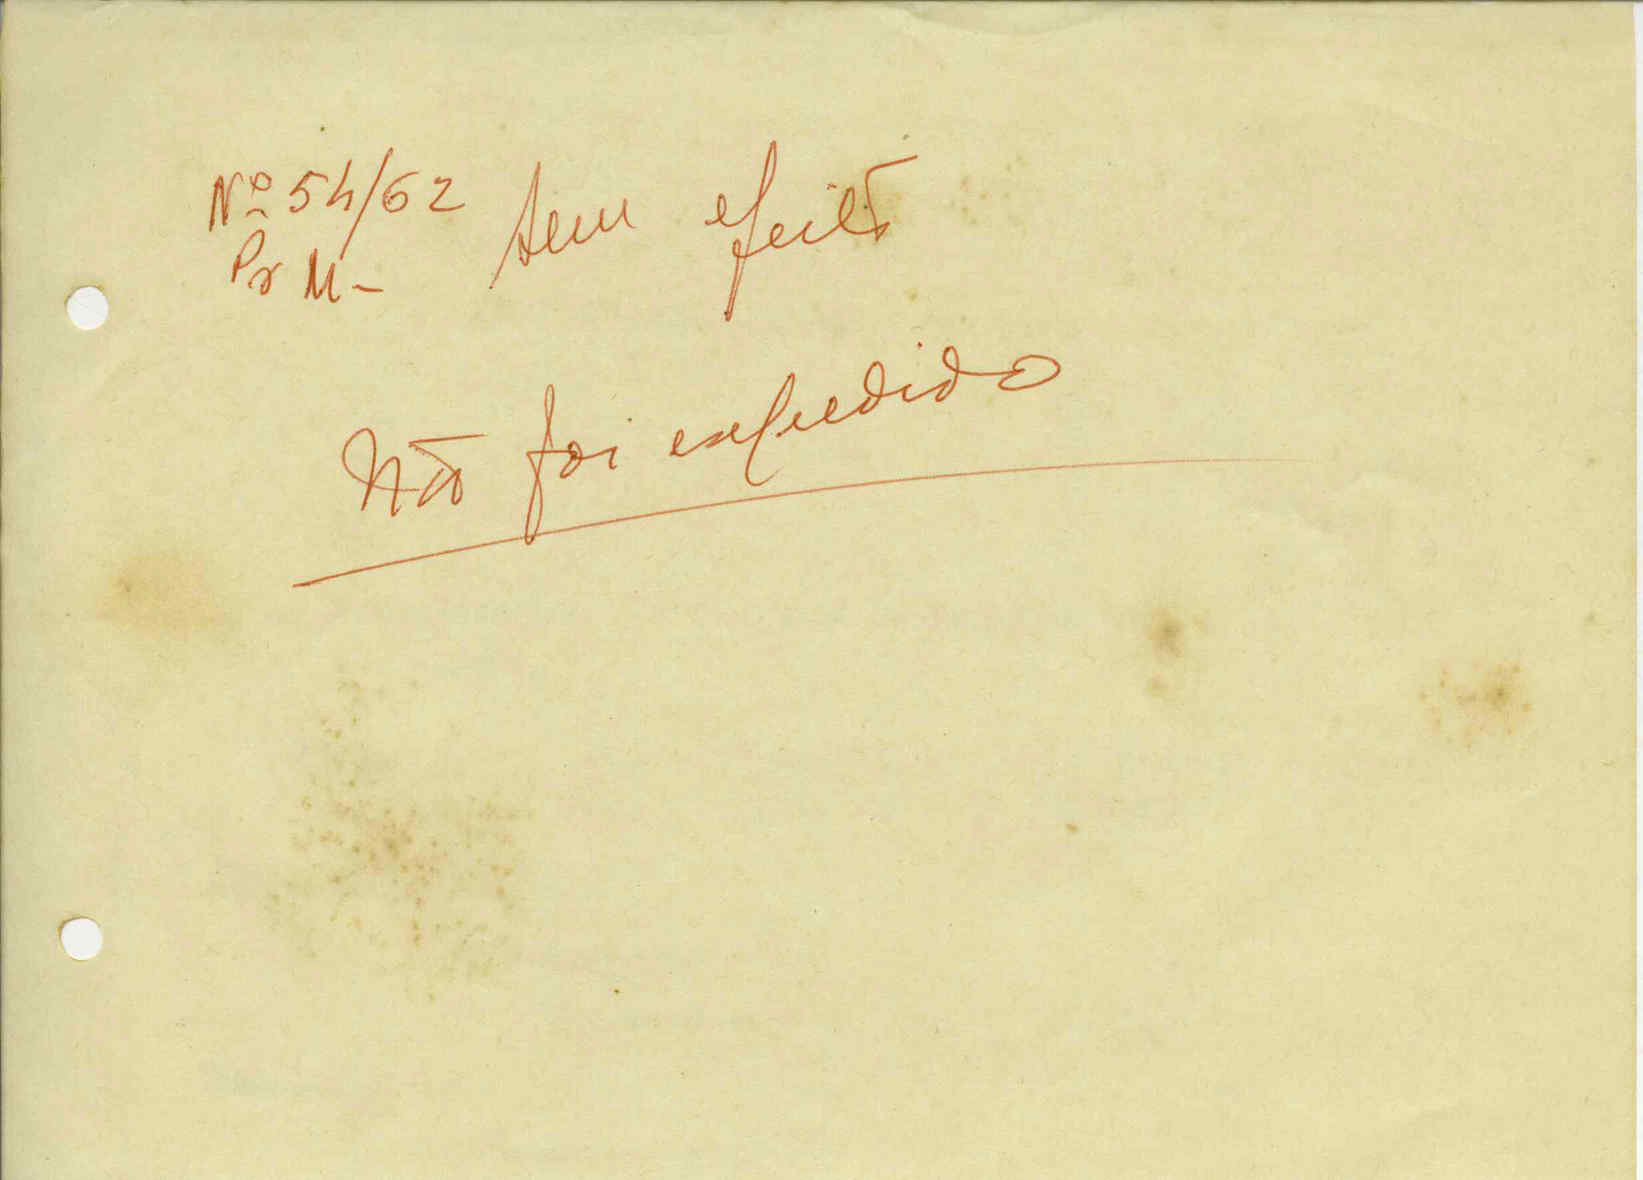 Nº 54/62 sem efeito
Pr M-
Não foi expedido